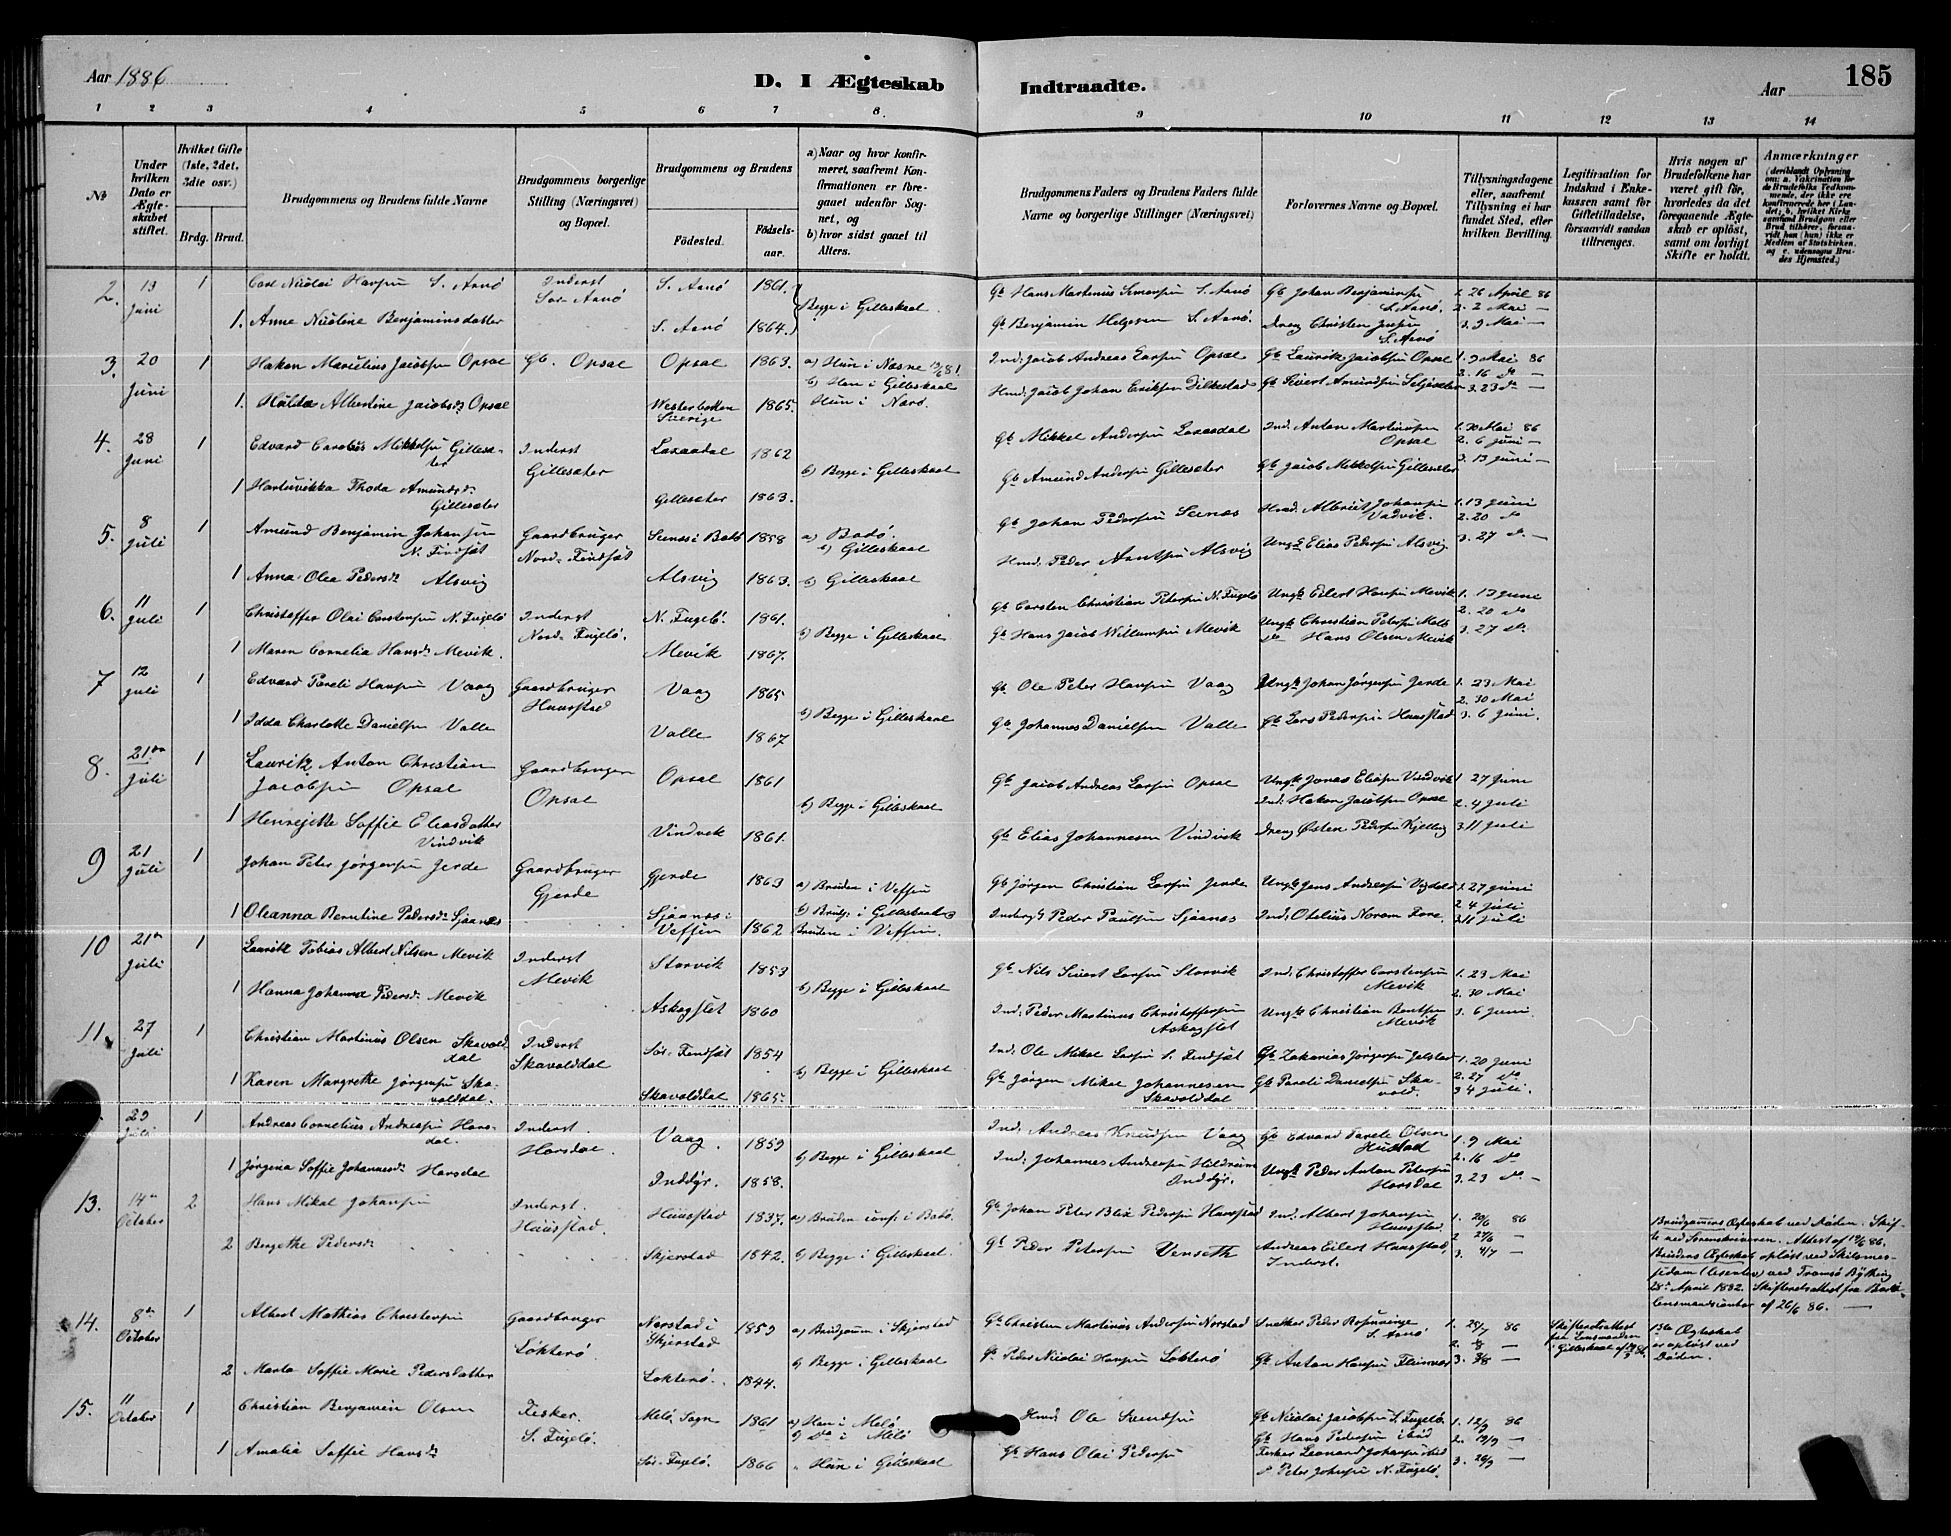 Aar 1886
D. I Ægteskab Indtraadte.
Aar
185
1 2 3 4 5 6 7 8. 9 10 11 12 13 14
No
Under hvilken Dato er Ægteskabet stiftet.
Hvilket Gifte (1ste, 2det, 3die osv.)
Brdg. Brud.
Brudgommens og Brudens fulde Navne
Brudgommens borgerlige Stilling (Næringsvei) og Bopæl.
Brudgommens og Brudens
Fødested.
Fødselsaar.
a) Naar og hvor konfirmeret, saafremt Konfirmationen er foregaaet udenfor Sognet, og
b) hvor sidst gaaet til Alters.
Brudgommens Faders og Brudens Faders fulde Navne og borgerlige Stillinger (Næringsvei)
Forlovernes Navne og Bopæl.
Tillysningsdagene eller, saafremt Tillysning ei har fundet Sted, efter hvilken Bevilling.
Legitimation for Indskud i Enkekassen samt for Giftetilladelse, forsaavidt saadan tiltrænges.
Hvis nogen af Brudefolkene har været gift før, hvorledes da det foregaaende Ægteskab er opløst, samt om lovligt Skifte er holdt.
Anmærkninger
2. 13 Juni 1 Carl Nicolai Hansen S. Arnö Inderst Sør-Arnö S. Arnö 1861. Begge i Gilleskaal. Gb Hans Martinus Simonsen S. Arnö Gb Johan Benjaminsen S. Arnö. 1. 26 April 86
1. Anne Nicoline Benjaminsdatter S. Arnö 1864. Gb Benjamin Helgesen S. Arnö. Dreng Christen S. Arnö 2. 2 Mai 3. 9 Mai
3. 20 Juni 1 Hakon Marselius Jacobsen Opsal Gb. Opsal Opsal 1863. a) Hun i Næsne b) Han i Gilleskaal Ind: Jacob Andreas Larsen Opsal Gb Laurik Jacobsen Opsal 1. 9 Mai 86 2. 16 do
1. Hulda Albertine Jacobsd. Opsal Westerbotten Sverige 1865. Hun i Næsn. Hmd. Jacob Johan Eriksen Dilkestad Gb Sivert Amundsen 3. 23 do
4. 28 Juni 1 Edvard Carolius Mikkelsen Gillesæter Inderst Gillesæter Laxaadal 1862 b) Begge i Gilleskaal Gb Mikkel Andersen Laxaadal Ind. Anton Martinsen Opsal 1. 30 Mai 86 2. 6 Juni
1 Hartvikka Thoda Amundsd. Gillesæter Gillesæter 1863. Gb Amund Andersen Gillesæter Gb Jacob Mikkelsen Gillesæter 3. 13 Juni
5. 8 Juli 1 Amund Benjamin Johansen N. Findsæt Gaardbruger Nord-Findsæt Seines i Bodö 1858 a) Bodö. b) Gilleskaal Gb Johan Pedersen Seines Hmd. Albrigt Johansen Vadvik. 1. 13 Juni 2. 20 do
1 Anna Olea Pedersd. Alsvig Alsvig 1863. b) Gilleskaal Hmd. Peder Arntsen Alsvig Ungk Elias Pedersen Alsvig 3. 27 d.
6. 11 Juli 1 Christoffer Olai Carstensen N. Fugelö Inderst Nord-Fugelö. N. Fugelö. 1861. b) Begge i Gilleskaal Gb Carsten Christian Petersen N. Fugelö Ungk Eilert Hansen Mevik 1. 13 Juni 2. 20 do
1 Maren Cornelia Hansd. Mevik. Mevik 1867. Gb Hans Jacob Willumsen Mevik Ungk Christian Petersen do Hans Olsen Mevik 3. 27 do
7 12 Juli 1 Edvard Pareli Hansen Vaag Gaardbruger Haasstad Vaag 1865 b) Begge i Gilleskaal Gb Ole Peter Hansen Vaag Ungk Johan Jörgensen Jerde 1. 23 Mai 2. 30 Mai
1 Idda Charlotte Danielsen Valle Valle 1867 Gb Johannes Danielsen Valle Gb Lars Pedersen Haasstad 3. 6 Juni.
8. 21de Juli 1 Lauritz Anton Christian Jacobsen Opsal Gaardbruger Opsal Opsal 1861 b) Begge i Gilleskaal Gb Jacob Andreas Larsen Opsal Ungk Jonas Eliasen Vindvik Ind: Hakon Jacobsen Opsal 1. 27 Juni 2. 4 Juli
1 Henrejette Soffie Eliasdatter Vindvik Vindvik 1861. Gb Elias Johannesen Vindvik Dreng Østen Pedersen Kjelling 3. 11 Juli
9 21 Juli 1 Johan Peter Jørgensen Jerde Gaardbruger Gjerde Gjerde 1863 a) Bruden i Vefsen Gb Jørgen Christian Larsen Jerde Ungk Jens Andreasen 1. 27 Juni 2. 4 Juli
1 Oleanna Berntine Pedersd. Sjaanes Sjaanes i Vefsen 1862 b) Brudg. i Gilleskaal Bruden i Vefsen. Inderst Peder Paulsen Sjaanes Ind. Otelius Norum Fore. 3. 11 Juli
10 21de Juli 1 Laurik Tobias Albert Nilsen Mevik Inderst Mevik Storvik 1853 b) Begge i Gilleskaal Gb Nils Sivert Larsen Storvik Ind. Christoffer Carstensen Mevik 1. 23 Mai 2. 30 Mai
1 Hanna Johanna Pedersd. Mevik Askagslet 1860 Ind. Peder Martinus Christoffersen Askagslet Ungk Christian Bentsen Mevik 3. 6 Juni.
11. 27 Juli 1 Christian Martinus Olsen Skavolddal Inderst Skavolddal Sør-Findsæt 1854 b) Begge i Gilleskaal Ind. Ole Mikal Larsen S. Findsæt Gb Zakarias Jørgensen Jelstad 1. 20 Juni 2. 27 do
1 Karen Margrethe Jørgensen Skavolddal. Skavolddal 1865. Gb Jørgen Mikal Johannesen Skavolddal Gb Pareli Danielsen Skavold. 3 4 Juli.
29 Juli 1 Andreas Cornelius Andreasen Horsdal. Inderst. Horsdal. Vaag. 1859 b) Begge i Gilleskaal Ind. Andreas Knudsen Vaag Gb Edvard Parele Olsen Hustad 1. 9 Mai 2. 16 do
1 Jørgina Soffie Johannesd. Horsdal Inddyr. 1858. Ind. Johannes Andreasen Hildrum Inddyr. Ungk Peder Anton Petersen Horsdal 3. 23 do
13. 14de October 2 Hans Mikal Johansen Inderst. Haasstad. Haasstad 1837. a) Bruden conf. i Bodö. Gb Johan Peter Blix Pedersen Haasstad Ind. Albert Johansen Haasstad. 1. 20/6 86 2 27/6
2 Bergethe Pedersd. Skjerstad 1842. b) Begge i Gilleskaal. Gb Peder Petersen Venseth Andreas Eilert Haasstad, Inderst. 3. 4/7
Brudgomens Ægteskab ved Døden. Skifte ved Sorenskriveren. Attest af 19/6 86. Brudens Ægteskab opløst ved Skilsmessedom ved Tromsö Bything 28de April 1882. Skifteattest fra Bodö Lensmandscontor af 26/6 86.
14. 8de October 1 Albert Mathias Christensen Gaardbruger Løkterö. Norstad i Skjerstad 1859 a) Brudgom i Skjerstad Gb Christen Martinus Andersen Norstad Snekker Peder S. Arnö 1. 25/7 86 2. 1/8 Skifteattest fra Lensmanden i Gilleskaal 1ste Ægteskab er opløst ved Døden.
2 Marta Soffie Marie Pedersdatter Løkterö. 1844. b) Begge i Gilleskaal Gb Peder Nicolai Hansen Løkterö Gb Anton Hansen Fleinvær 3. 8/8
15. 11 October 1 Christian Benjamin Olsen Fisker. S. Fugelö. Melö Sogn 1861 a) Han i Melö b) do i Melö Hmd. Ole Gb Nicolai Jacobsen S. Fugelö. 1. 12/9 86 Gb Hans Pedersen ibid 2. 19/9
1 Amalia Soffie Hansd. Sør-Fugelö. 1866 " Hun i Gilleskaal Gb Hans Olai Pedersen Fisker Leonard Johansen ibid 3. 26/9
do Peter Johnsen N. Fugelö.